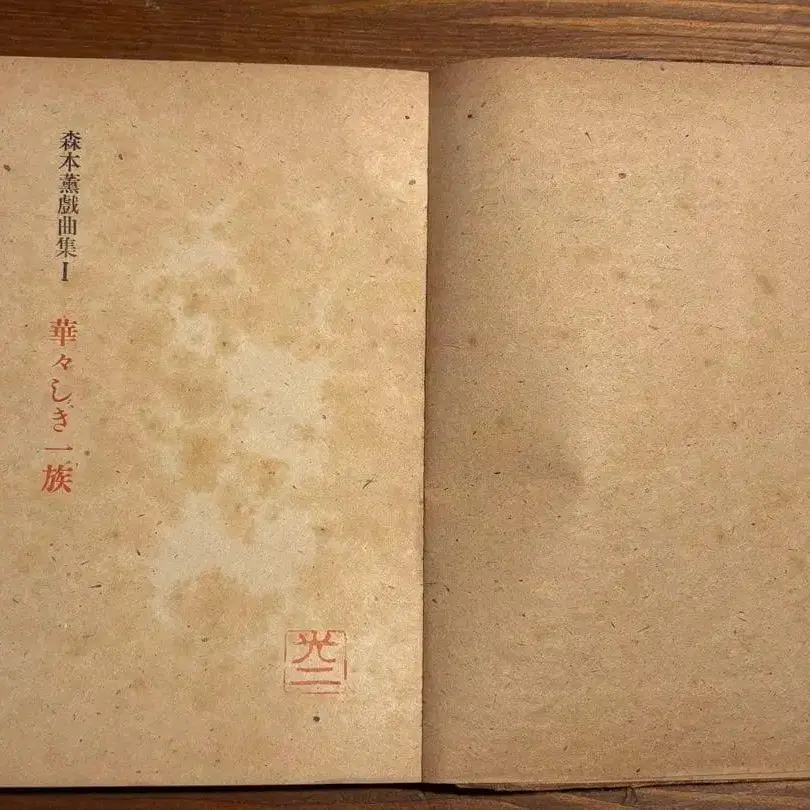 森本薫戯曲集I
華々しき一族
光二